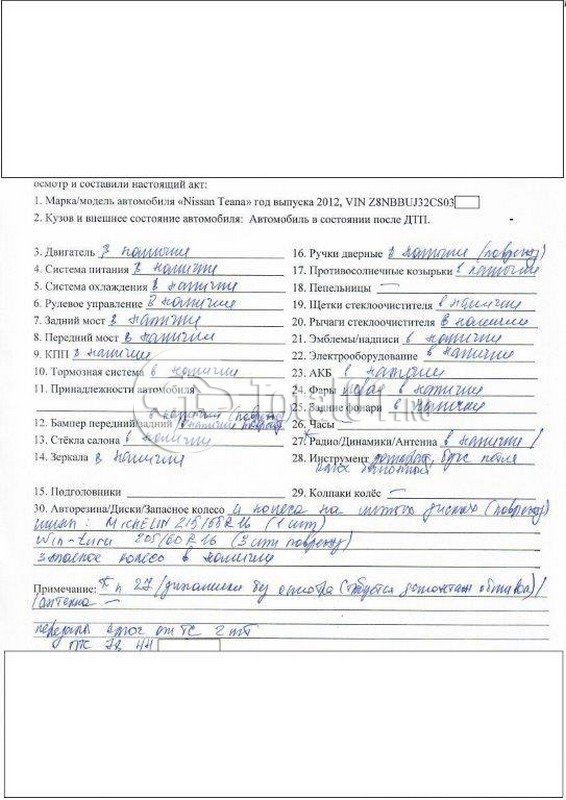 осмотр и составили настоящий акт:
1. Марка/модель автомобиля «Nissan Teana» год выпуска 2012, VIN Z8NBBUJ32CS03
2. Кузов и внешнее состояние автомобиля: Автомобиль в состоянии после ДТП.
3. Двигатель в наличии
4. Система питания в наличии
5. Система охлаждения в наличии
6. Рулевое управление в наличии
7. Задний мост в наличии
8. Передний мост в наличии
9. КПП в наличии
10. Тормозная система в наличии
11. Принадлежности автомобиля
12. Бампер передний/задний в наличии
13. Стёкла салона в наличии
14. Зеркала в наличии
15. Подголовники
16. Ручки дверные в наличии (поврежд)
17. Противосолнечные козырьки в наличии
18. Пепельницы —
19. Щетки стеклоочистителя в наличии
20. Рычаги стеклоочистителя в наличии
21. Эмблемы/надписи в наличии
22. Электрооборудование в наличии
23. АКБ в наличии
24. Фары левая в наличии
25. Задние фонари в наличии
26. Часы
27. Радио/Динамики/Антенна в наличии/
28. Инструмент домкрат, букс петля
29. Колпаки колёс —
30. Авторезина/Диски/Запасное колесо 4 колеса на литых дисках (поврежд)
шипы: MICHELIN 215/55 R16 (1 шт)
Win-turu 205/60 R16 (3 шт поврежд)
запасное колесо в наличии
Примечание: * п 27 / динамики без осмотра (требуется демонтаж обшивка)/
/антенна —
переданы ключ от ТС 2 шт
Total01.RU